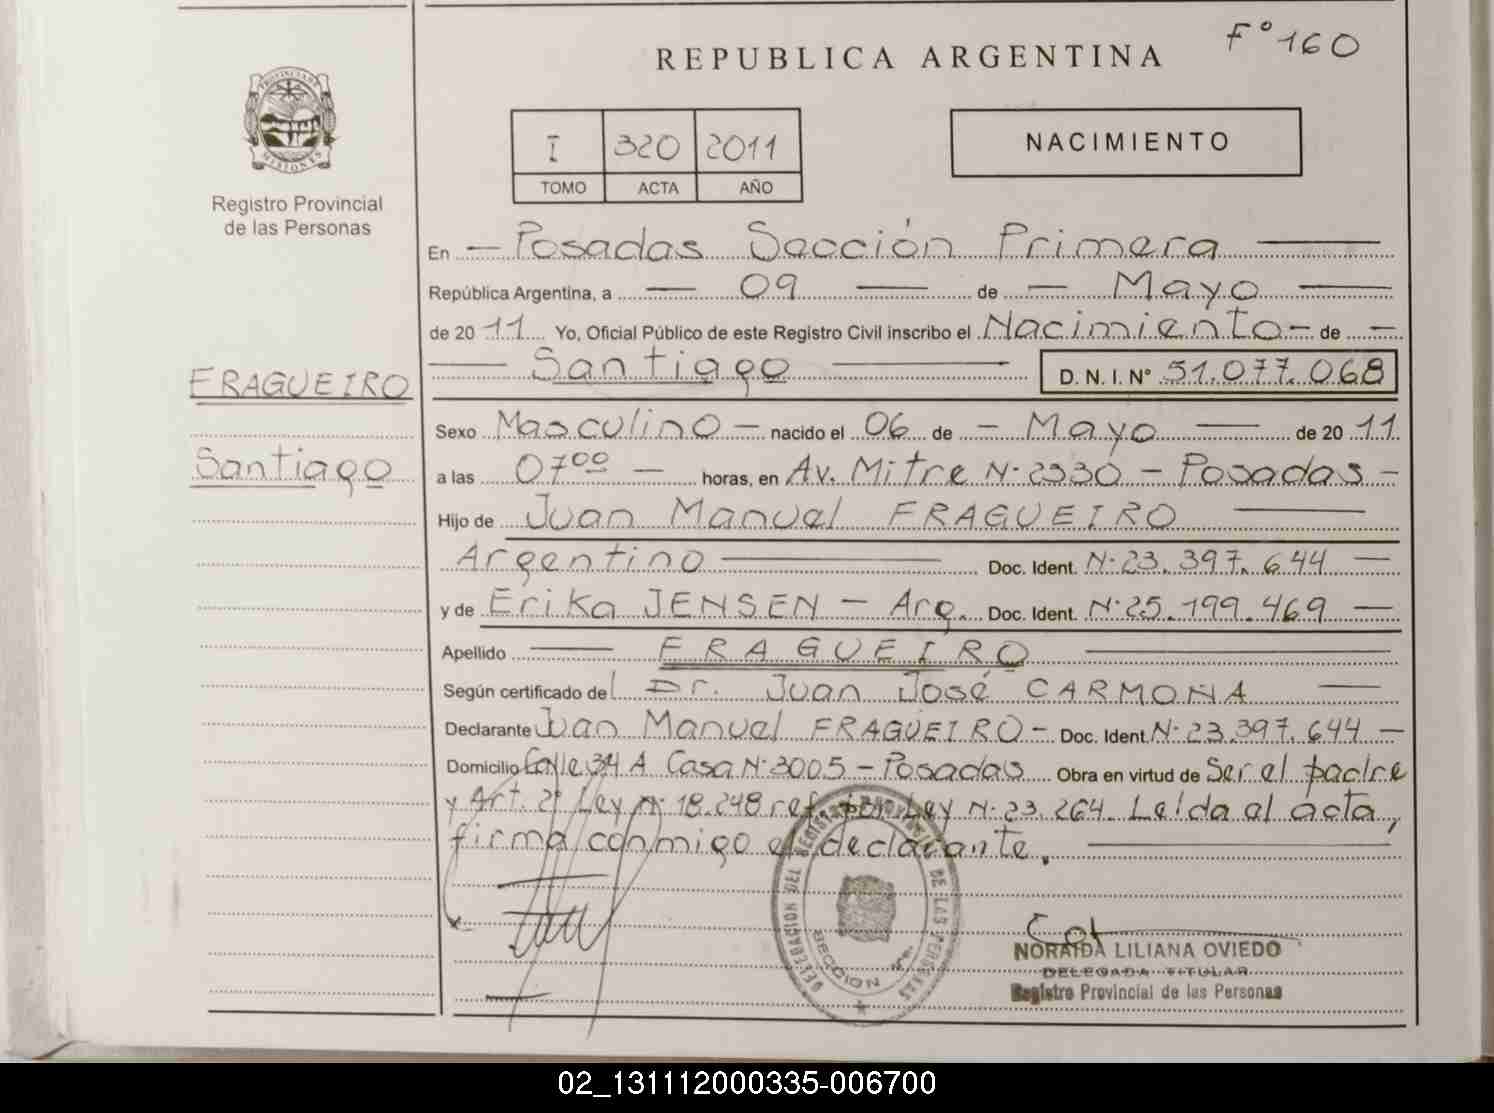 F° 160
REPUBLICA ARGENTINA
PROVINCIA DE
MISIONES
Registro Provincial
de las Personas
I 320 2011
TOMO ACTA AÑO
NACIMIENTO
En — Posadas Sección Primera —
República Argentina, a — 09 — de — Mayo —
de 2011 Yo, Oficial Público de este Registro Civil inscribo el Nacimiento — de —
— Santiago — D. N. I. N° 51.077.068
FRAGUEIRO
Santiago
Sexo Masculino — nacido el 06 de — Mayo — de 2011
a las 07⁰⁰ — horas, en Av. Mitre N· 2330 — Posadas —
Hijo de Juan Manuel FRAGUEIRO —
Argentino — Doc. Ident. N· 23.397.644 —
y de Erika JENSEN — Arg. Doc. Ident. N· 25.199.469 —
Apellido — FRAGUEIRO —
Según certificado del Dr. Juan José CARMONA —
Declarante Juan Manuel FRAGUEIRO — Doc. Ident. N· 23.397.644 —
Domicilio Calle 34 A Casa N· 3005 — Posadas Obra en virtud de Ser el padre
y Art. 2° Ley N· 18.248 ref. por Ley N· 23.264. Leída el acta,
firma conmigo el declarante. —
DELEGACION DEL REGISTRO PROVINCIAL DE LAS PERSONAS
SECCION 1ra.
NORAIDA LILIANA OVIEDO
DELEGADA TITULAR
Registro Provincial de las Personas
02_131112000335-006700